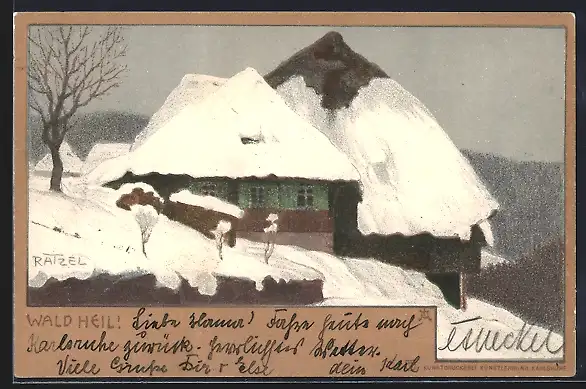 RATZEL
WALD HEIL! Liebe Mama! Fahre heute nach
Karlsruhe zurück. herrlichstes Wetter.
Viele Grüße Dir & Else dein Karl
KUNSTDRUCKEREI KÜNSTLERBUND KARLSRUHE